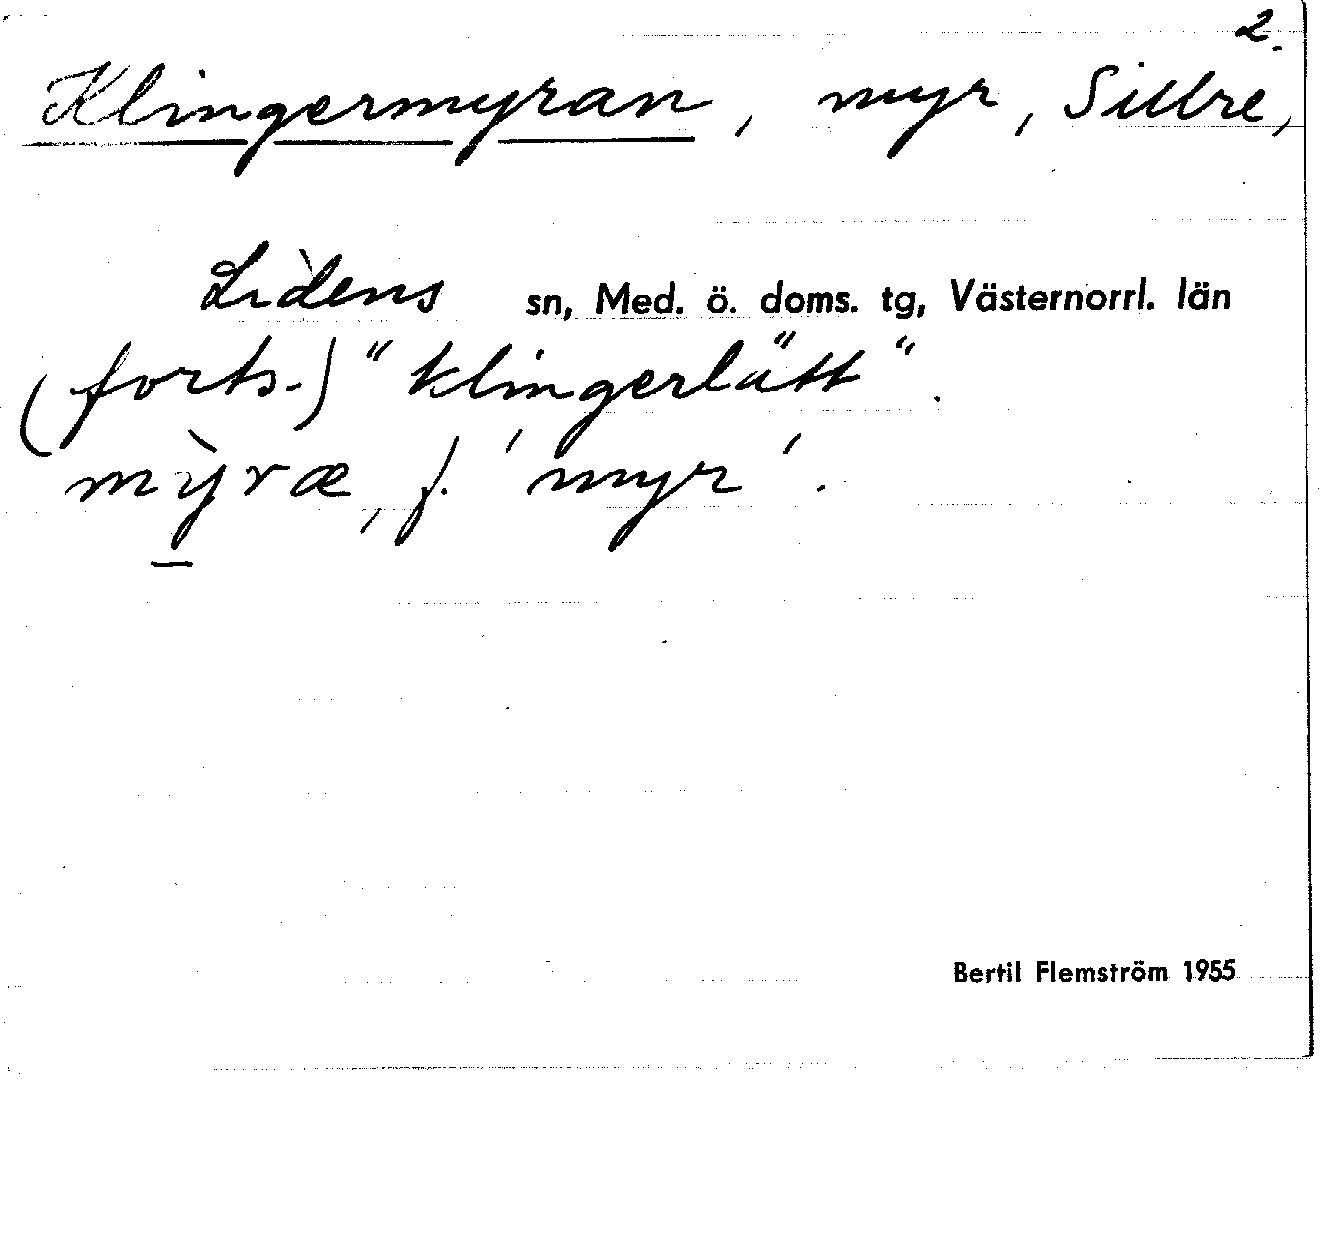 2.
Klingermyran, myr, Sillre,
Lidens sn, Med. ö. doms. tg, Västernorrl. län
(forts.) "klingerlätt".
mỳ̱ræ, f. 'myr'.
Bertil Flemström 1955